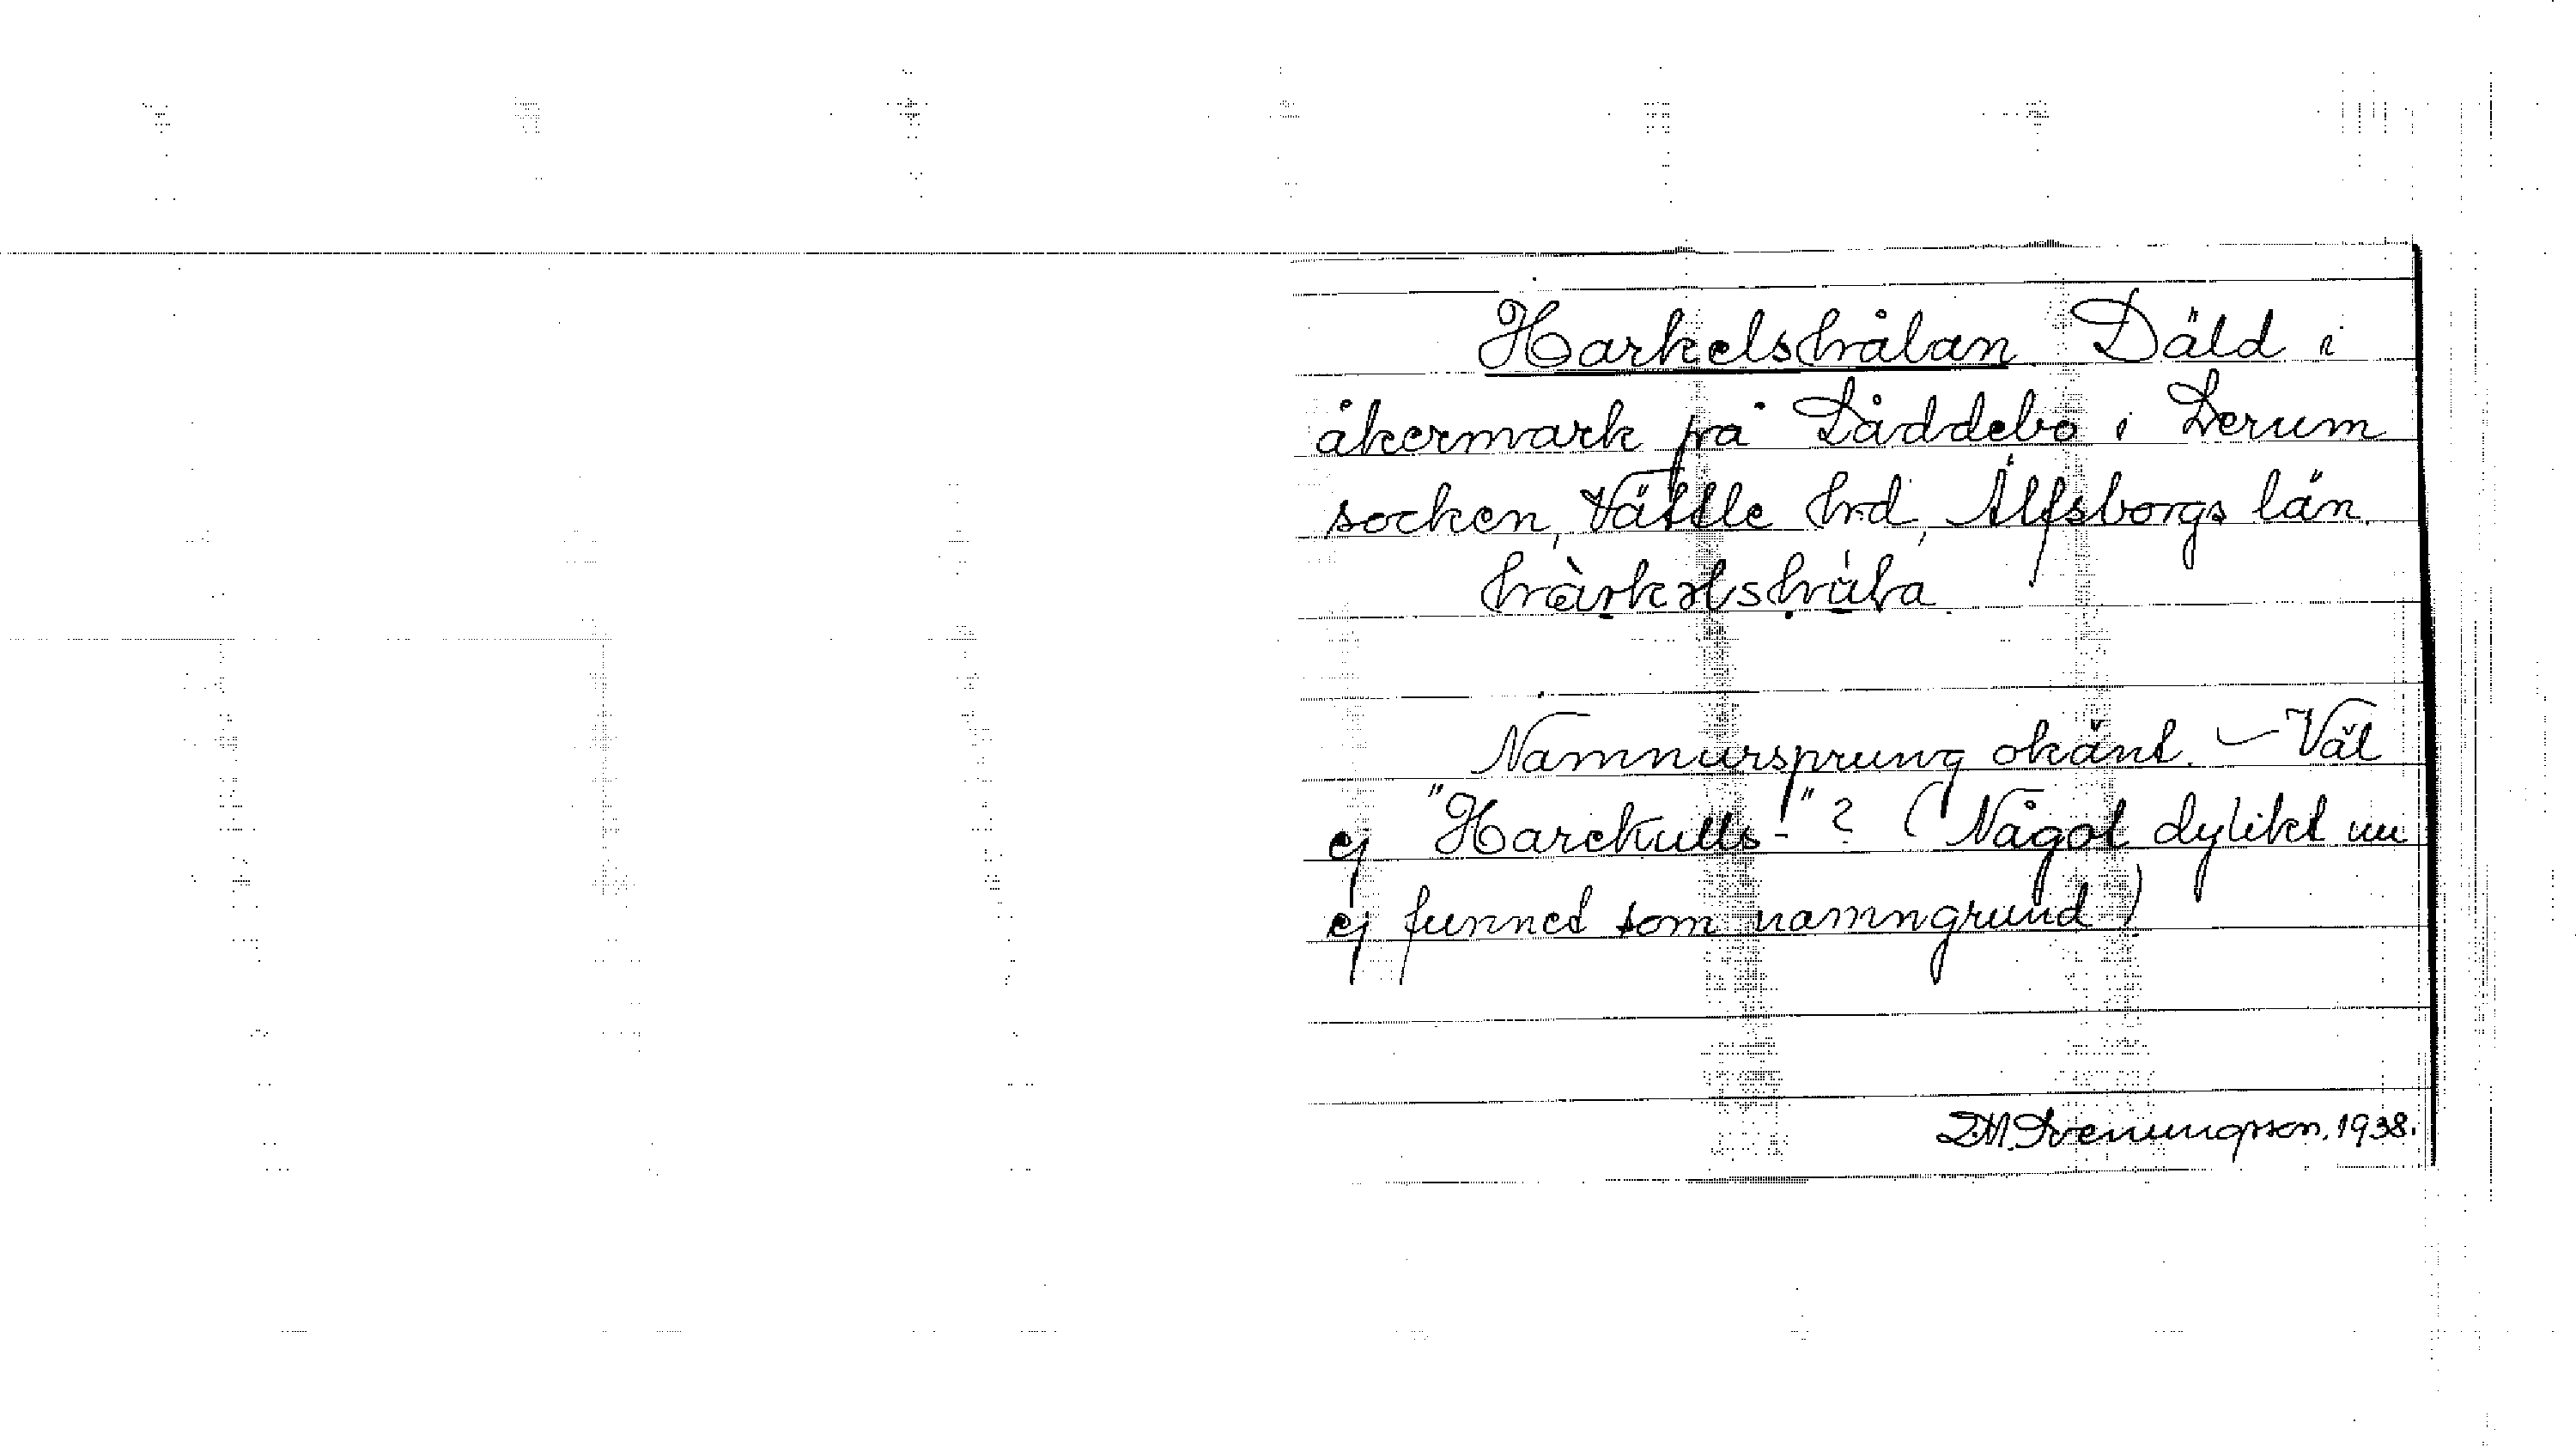 Harkelshålan Däld i
åkermark på Låddebo i Lerum
socken, Vättle hrd, Älfsborgs län.
Namnursprung okänt. – Väl
ej "Harckulls-"? (Något dylikt nu
ej funnet som namngrund)
D.M. Svenungsson. 1938.